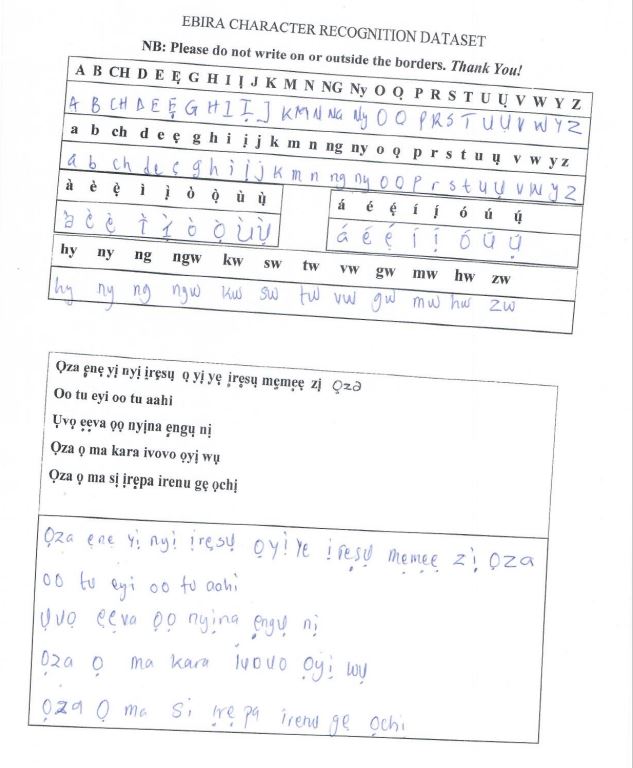 EBIRA CHARACTER RECOGNITION DATASET
NB: Please do not write on or outside the borders. Thank You!
A B CH D E Ẹ G H I Ị J K M N NG Ny O Ọ P R S T U Ụ V W Y Z
A B CH D E Ẹ G H I Ị J K M N NG Ny O O P R S T U Ụ V W Y Z
a b ch d e ẹ g h i ị j k m n ng ny o ọ p r s t u ụ v w y z
a b ch d e ẹ g h i ị j k m n ng ny o o p r s t u ụ v w y z
à è ẹ̀ ì ị̀ ò ọ̀ ù ụ̀ á é ẹ́ í ị́ ó ú ụ́
à è ẹ̀ ì ị̀ ò ọ̀ ù ụ̀ á é ẹ́ í ị́ ó ú ụ́
hy ny ng ngw kw sw tw vw gw mw hw zw
hy ny ng ngw kw sw tw vw gw mw hw zw
Ọza ẹnẹ yị nyị ịrẹsụ ọ yị yẹ ịrẹsụ mẹmẹẹ zị Ọza
Oo tu eyi oo tu aahi
Ụvọ ẹẹva ọọ nyịna ẹngụ nị
Ọza ọ ma kara ivovo ọyị wụ
Ọza ọ ma sị ịrẹpa irenu gẹ ọchị
Ọza ẹnẹ yị nyị ịrẹsụ ọyị yẹ ịrẹsụ mẹmẹẹ zị Ọza
oo tu eyi oo tu aahi
Ụvọ ẹẹva ọọ nyịna ẹngụ nị
Ọza Ọ ma kara ivovo Ọyị wụ
Ọza Ọ ma si ịrẹpa irenu gẹ Ọchi